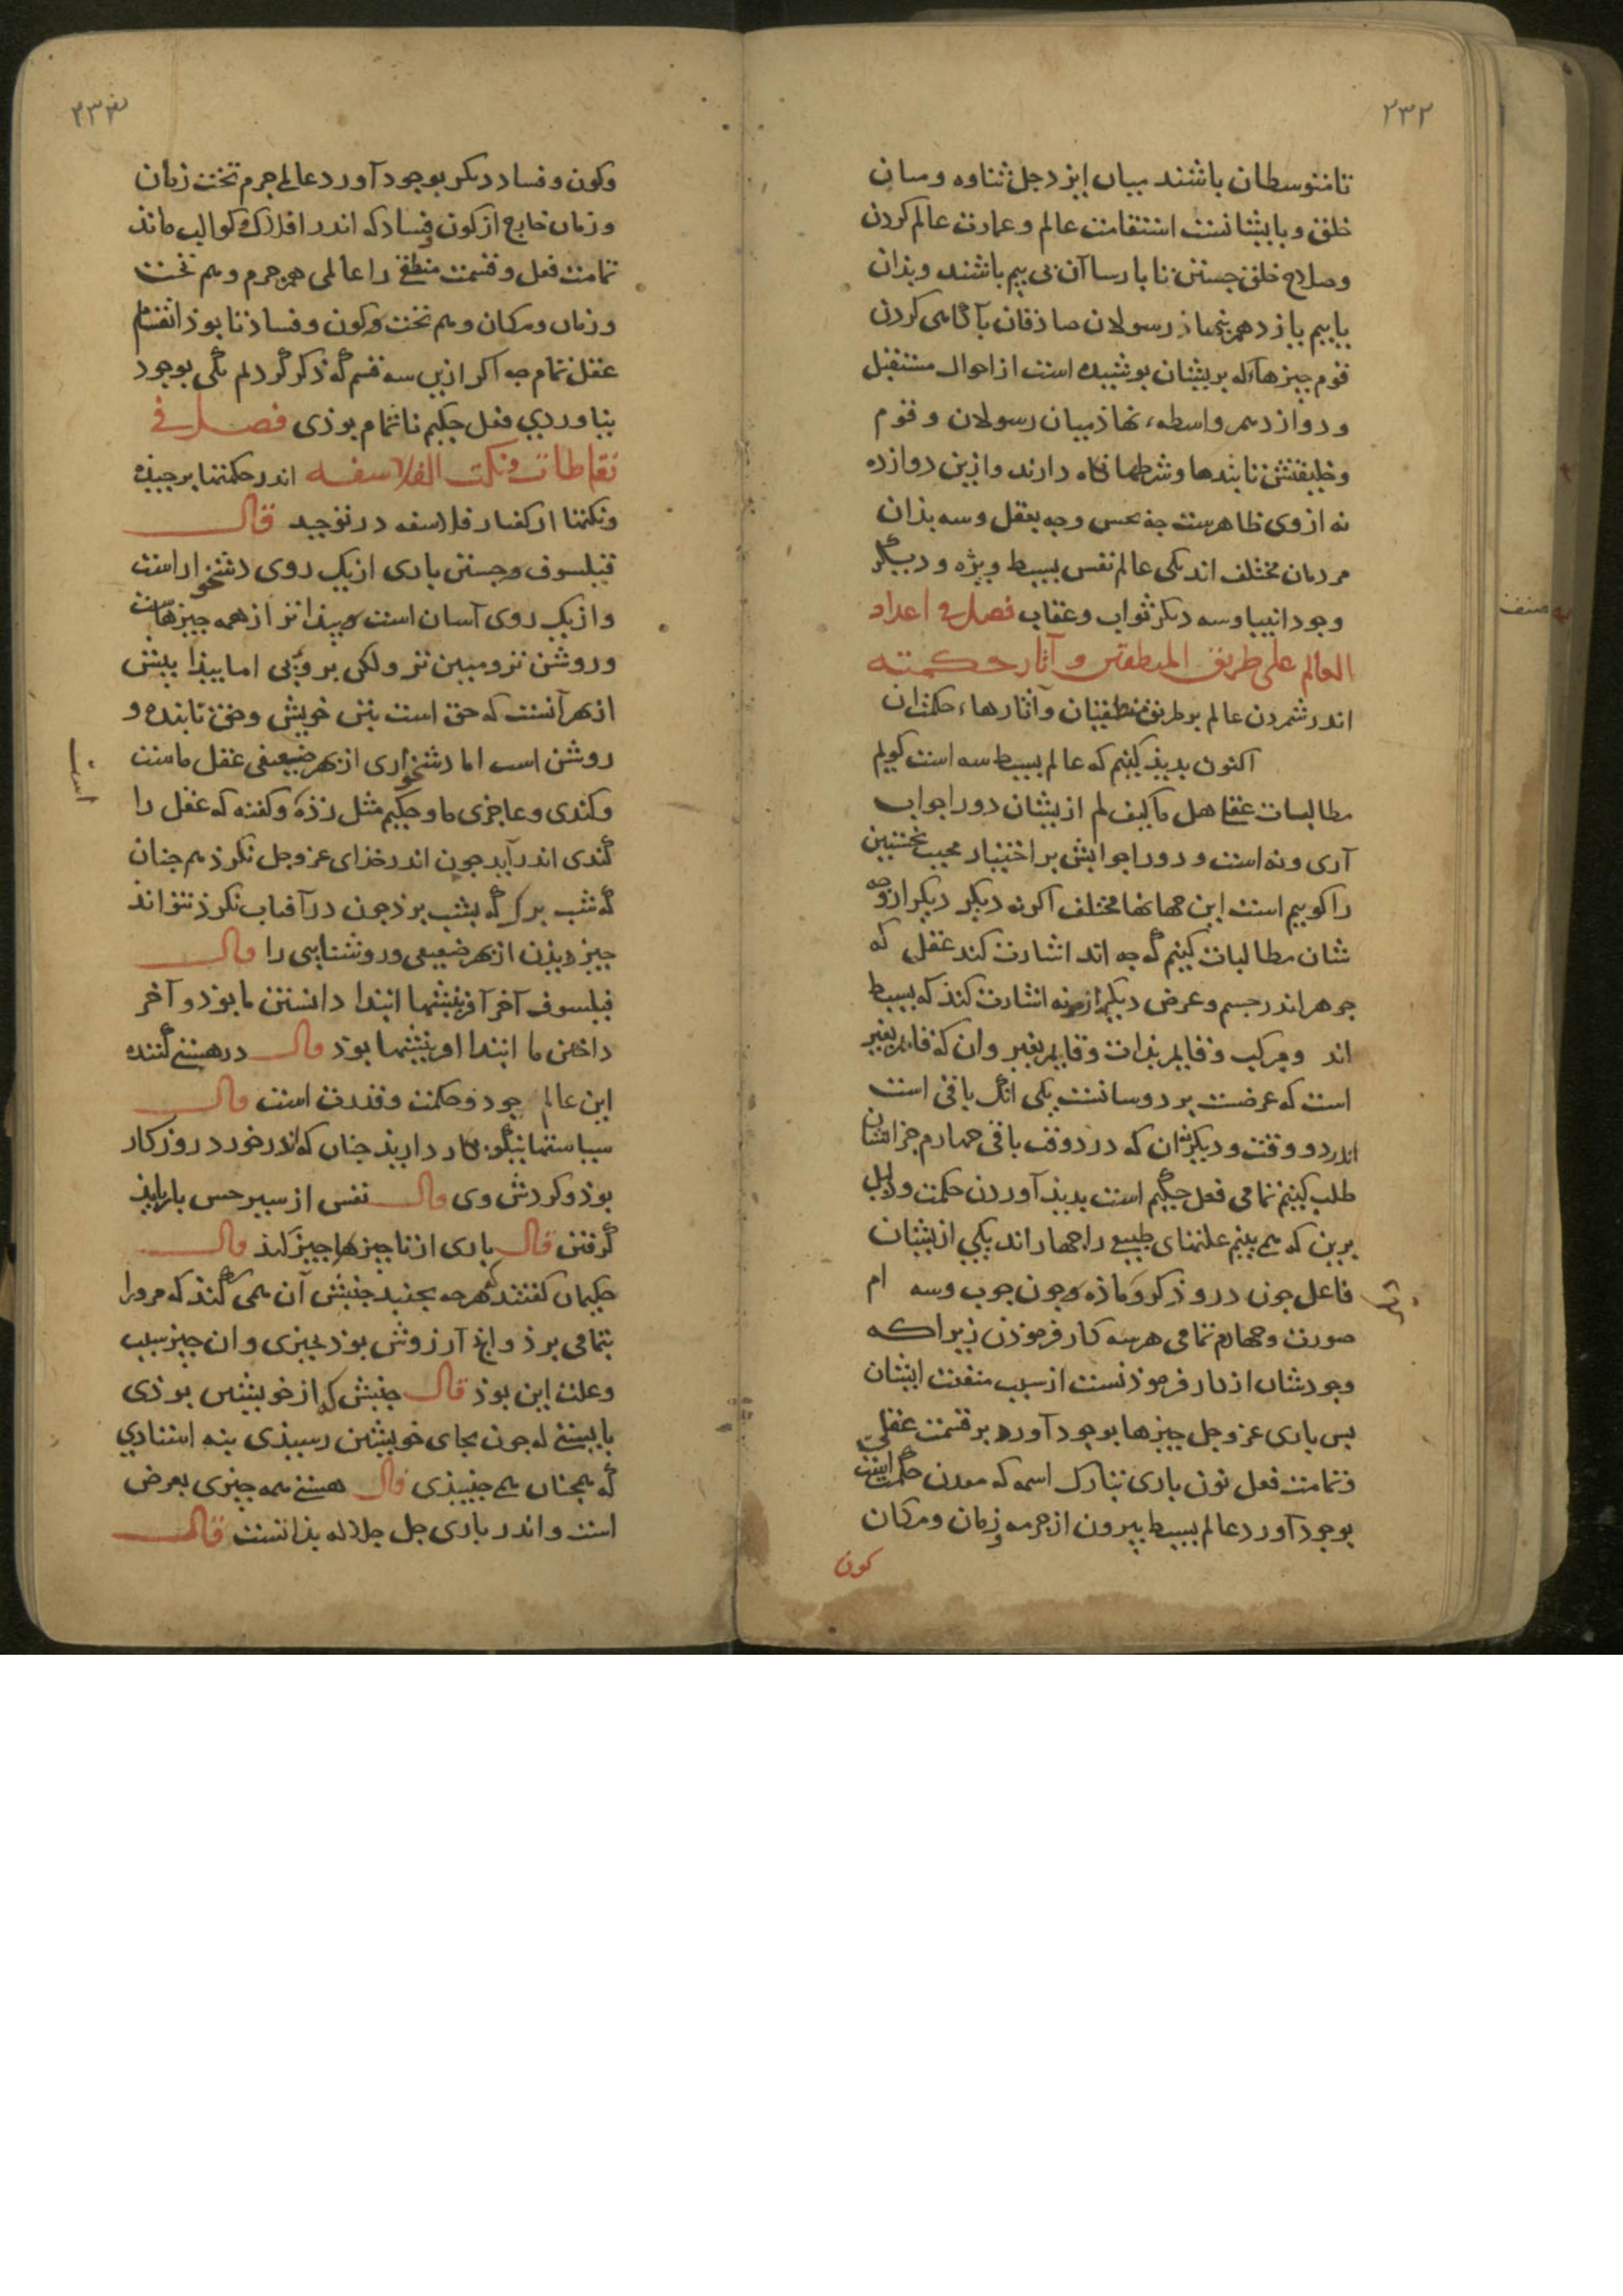 ٢٣٢
تا متوسطان باشند میان ایزد جل ثناوه و میان
خلق و بایشانست استقامت عالم و عمارت عالم کردن
وصلاح خلق جستن تا بارسا آن بی بیم باشند و بذان
بابیم یازدهم رسولان صاذقان بآگاهی کردن
قوم چیزهاکه بریشان بوشیده است از احوال مستقبل
ودوازدهم واسطه نهاذ میان رسولان و قوم
وخلیفتش تا بندها و شرطها نگاه دارند و ازین دوازده
نه ازوی ظاهرست چه بحس وچه بعقل و سه بذان
مردمان مختلف اند یکی عالم نفس بسیط ویژه و دیگر
وجود انبیا وسه دیگر ثواب وعقاب فصل فی اعداد
صنف
العالم علی طریق المنطقین و آثار حکمته
اندر شمردن عالم بر طریق منطقیان و آثارهاء حکمت ان
اکنون بدیذ کنیم که عالم بسیط سه است کویم
مطالبات عقل هل ما کیف لم ازیشان دو را جواب
آری ونه است و دو را جوابش بر اختیار مجیب نخستین
را کوییم است این جهانها مختلف اکرنه دیگر دیگر از وجه
شان مطالبات کنیم که چه اند اشارت کند عقل که
جوهر اند جسم و عرض دیگر ازچه اشارت کنذ که بسیط
اند ومرکب وقایم بذات وقایم بغیر وان که قایم بغیر
است که عرضست بر دو سانست یکی انک باقی است
اندر دو وقت و دیگر ان که در دو وقت باقی چهارم چراشان
طلب کنیم تمامی فعل حکیم است بدیذ آوردن حکمت ودلیل
برین که می بینم علتهای طبیع را چهار اند یکی ازیشان
فاعل چون دروذکر و ماذه چون چوب وسه ام
صورت و چهارم تمامی هرسه کار فرموذن زیراکه
وجودشان از کار فرموذنست از سبب منفعت ایشان
بس باری عز وجل چیزها بوجود آورد بر قسمت عقلی
وتمامت فعل نون باری تبارک اسمه که معدن حکمت است
بوجود آورد عالم بسیط بیرون از جرم و زمان و مکان
کون
٢٣٣
وکون وفساد دیگر بوجود آورد عالی جرم تحت زمان
وزمان خارج از کون و فساد که اندر افلاک و کواکب ماند
تمامت فعل و قسمت منطقی را عالمی هم جرم وهم تحت
وزمان ومکان وهم تحت وکون وفساذ تا بوذ انقسام
عقل تمام چه اکر ازین سه قسم که ذکر کردم یکی بوجود
نیاوردی فعل حکیم ناتمام بوذی فصل فی
نقاطات ونکت الفلاسفه اندر حکمتها برچیذه
ونکتها از کفتار فلاسفه در توحید قال
فیلسوف جستن باری از یک روی دشخوار است
واز یک روی آسان است وبیذاتر از همه چیزهاست
وروشن تر ومبین تر ولکن بروی اما بیذا بیش
از بهر آنست که حق است بتن خویش وحق تابنده و
روشن است اما دشخواری از بهر ضعیفی عقل ماست
است
وکندی وعاجزی ما وحکیم مثل زذه وکفته که عقل را
کندی اندر آید چون اندر خذای عز وجل نکرذ هم چنان
که شب برک که بشب برذ چون در آفتاب نکرذ نتواند
چیز دیذن از بهر ضعیفی و روشنایی را قال
فیلسوف آخر آفرینشها ابتدا دانستن ما بوذ و آخر
دانش ما ابتدا افرینشها بوذ قال در هستی کننده
این عالم جود وحکمت وقدرت است قال
سیاستها نیکو بکار داریذ چنان که اندر خورد روزکار
بوذ وکردش وی قال نفس از سیر حس باربایذ
کرفتن قال باری از ناچیزها چیز کند قال
حکیمان کفتند که هرچه بجنبد جنبش آن همی کند که مرورا
بتمامی برذ واند آرزوش بوذ بچیزی وان چیز سبب
وعلت این بوذ قال جنبش که از خویشتن بوذی
بایستی که چون بجای خویشتن رسیذی بنه استادی
که همچنان همی جنبیذی قال هستی همه چیزی بعرض
است واندر باری جل جلاله بذاتست قال